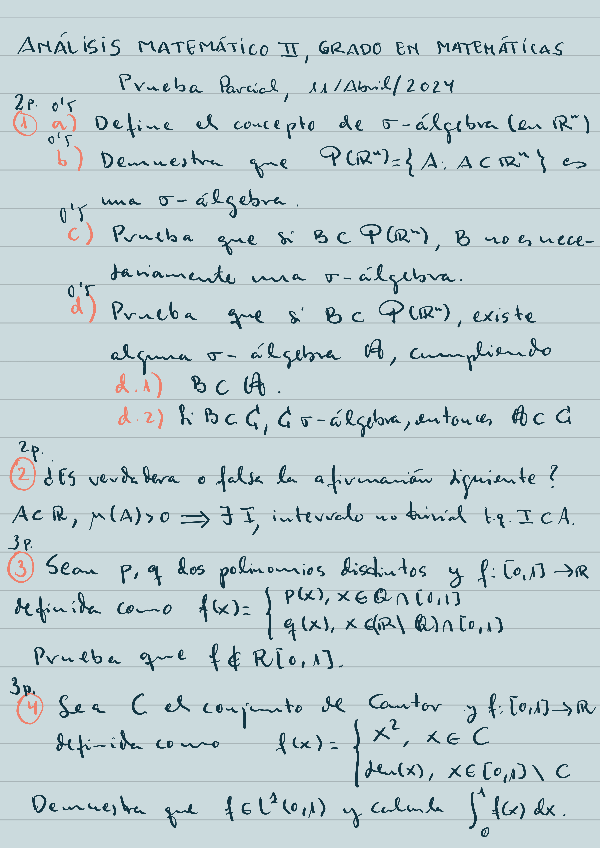 ANÁLISIS MATEMÁTICO II, GRADO EN MATEMÁTICAS
Prueba Parcial, 11/Abril/2024
2p. 0'5
① a) Define el concepto de σ-álgebra (en ℝⁿ)
0'5
b) Demuestra que P(ℝⁿ)={A: A⊂ℝⁿ} es
una σ-álgebra.
0'5
c) Prueba que si B⊂P(ℝⁿ), B no es nece-
sariamente una σ-álgebra.
0'5
d) Prueba que si B⊂P(ℝⁿ), existe
alguna σ-álgebra A, cumpliendo
d.1) B⊂A.
d.2) Si B⊂G, G σ-álgebra, entonces A⊂G
2p.
② ¿Es verdadera o falsa la afirmación siguiente?
A⊂ℝ, μ(A)>0 ⟹ ∃ I, intervalo no trivial t.q. I⊂A.
3p.
③ Sean p, q dos polinomios distintos y f: [0,1]→ℝ
definida como f(x)= { p(x), x∈ℚ∩[0,1]
q(x), x∈(ℝ\ℚ)∩[0,1]
Prueba que f∉R[0,1].
3p.
④ Sea C el conjunto de Cantor y f: [0,1]→ℝ
definida como f(x)= { x², x∈C
sen(x), x∈[0,1]\C
Demuestra que f∈L¹(0,1) y calcula ∫₀¹ f(x) dx.